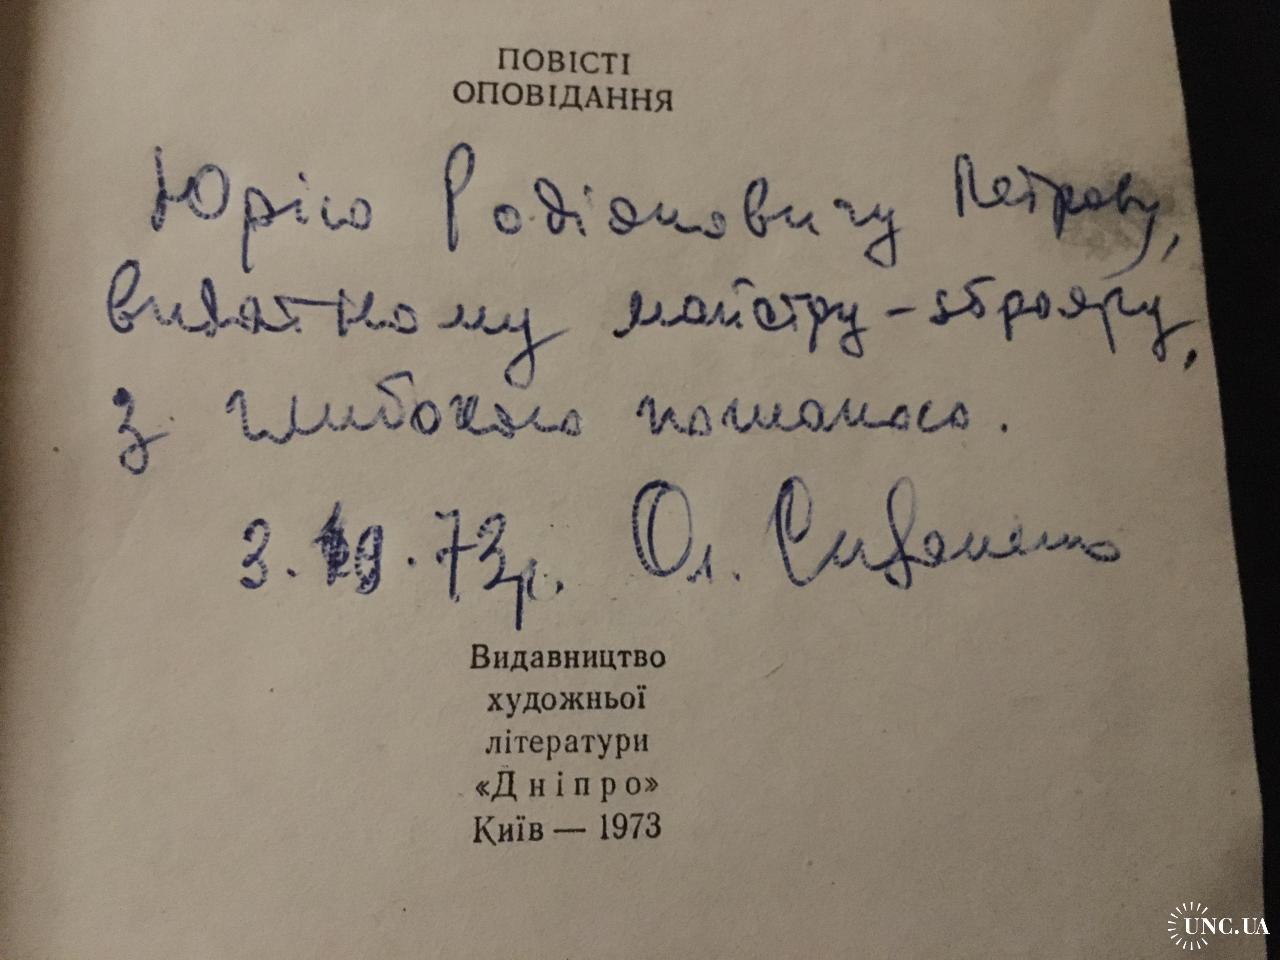 ПОВІСТІ
ОПОВІДАННЯ
Юрію Родіоновичу Петрову,
видатному майстру-зброяру,
з глибокою пошаною.
3. .73р. Ол. Сизоненко
Видавництво
художньої
літератури
«Дніпро»
Київ — 1973
UNC.UA